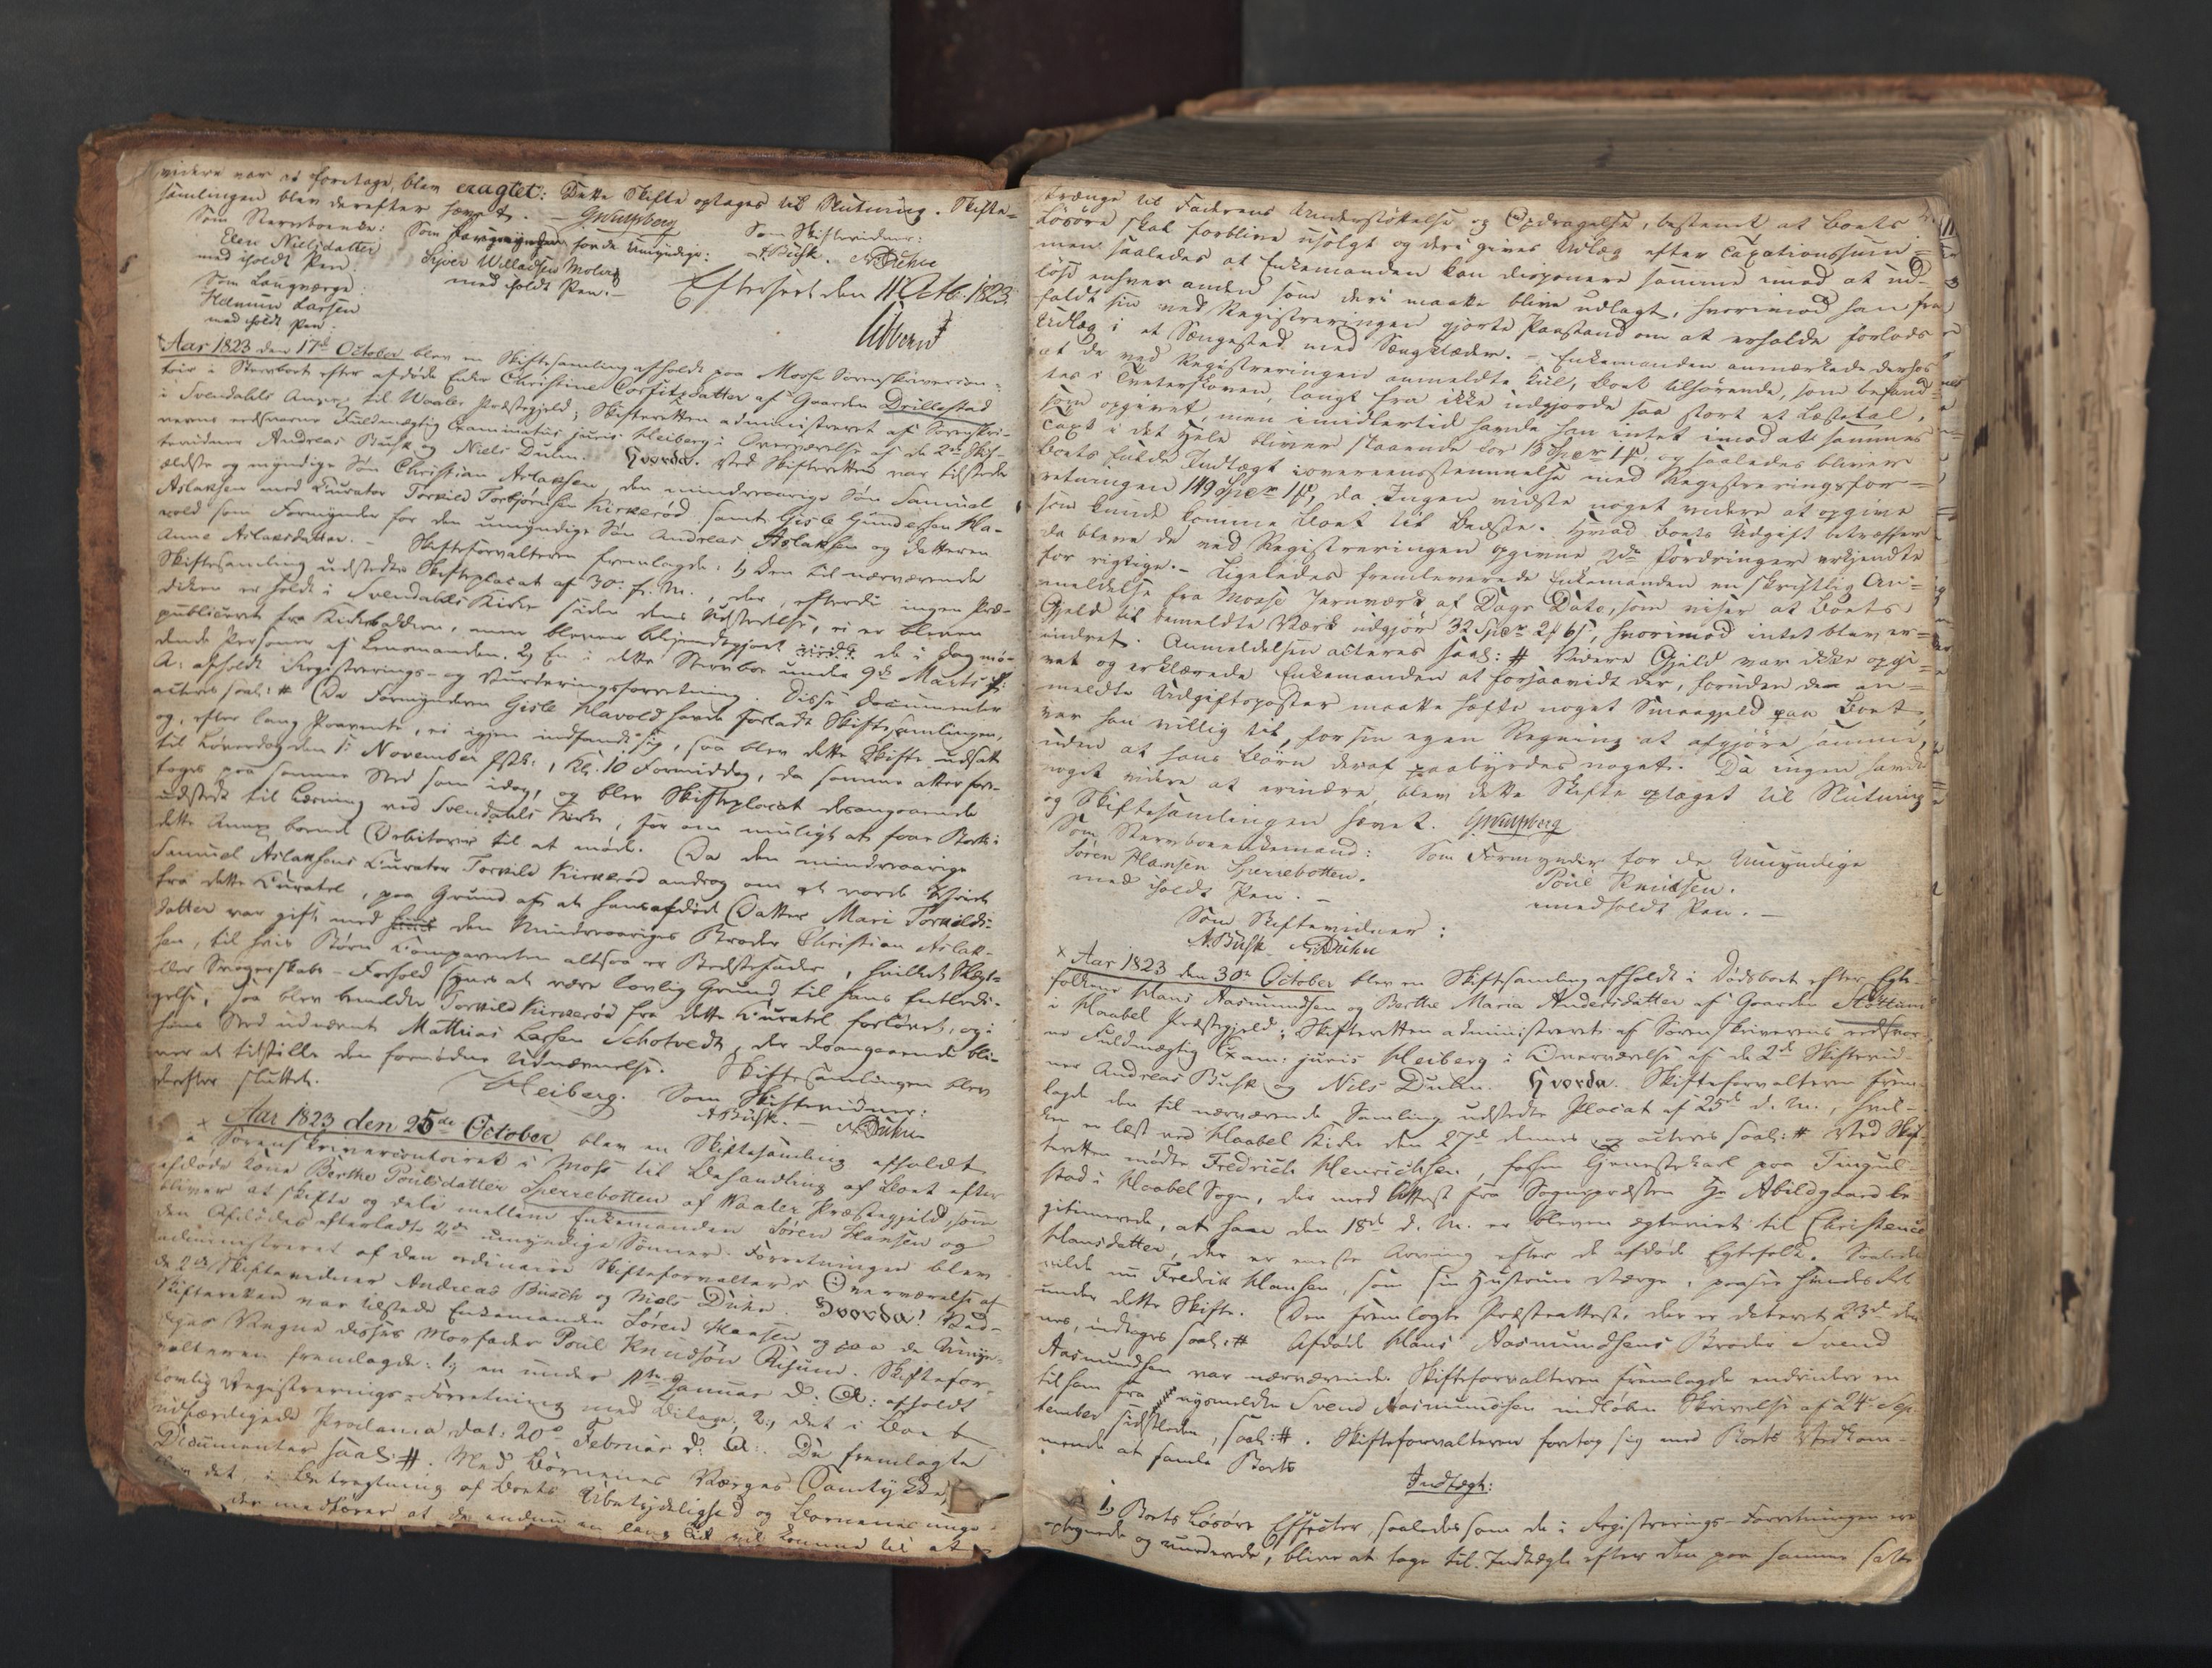 videre var at foretage, blev eragtet: Dette Skifte optages til Slutning. Skifte-
samlingen blev derefter hævet. –
Som Stervboenke: Som Formynder for de Umyndige: Som Skiftevidner:
Elen Nielsdatter Siver Willadsen Molerød ABusk. NDuhn
med iholdt Pen. med iholdt Pen. –
Som Laugværge: Efterseet den 11 Octb. 1823.
Rasmus Larsen
med iholdt Pen.
Aar 1823 den 17de October blev en Skiftesamling afholdt paa Mosse Sorenskrivercon-
toir i Stervboet efter afdøde Enke Christine Corfitzdatter af Gaarden Drillestad
i Svendahls Annex til Waaler Præstegjeld; Skifteretten administreret af Sorenskri-
verens edsvorne Fuldmægtig Examinatus juris Heiberg i Overværelse af de 2de Skif-
tevidner Andreas Busk og Niels Duhn. Hvorda. Ved Skifteretten var tilstede
ældste og myndige Søn Christian Aslaksen, den mindreaarige Søn Samuel
Aslaksen med Curator Torkild Torbjørnsen Kirkerød samt Gisle Gundersen Ha-
vold som Formynder for den umyndige Søn Andreas Aslaksen og Datteren
Anne Aslaksdatter. – Skifteforvalteren fremlagde: 1, Den til nærværende
Skiftesamling udstedte Skifteplacat af 30. f. M., der, efterdi ingen Præ-
diken er holdt i Svendahls Kirke siden dens Udstedelse, ei er bleven
publiceret fra Kirkebakken, men bleven bekjendtgjort de i Dag mø-
dende Personer af Lensmanden. 2, En i dette Stervboe under 9de Marts d:
A: afholdt Registrerings- og Vurderingsforretning. Disse Documenter
acteres saal: # Da Formynderen Gisle Havold havde forladt Skiftesamlingen,
og, efter lang Foravente, ei igjen indfandt sig, saa blev dette Skifte udsat
til Løverdag den 1: November førstk:, Kl. 10 Formiddag, da samme atter fore-
tages paa samme Sted som idag, og blev Skifteplacat desangaaende
udstedt til Læsning ved Svendahls Kirke, for om muligt at faae Boets i
dette Annex boende Debitorer til at møde. Da den mindreaarige
Samuel Aslaksens Curator Torkild Kirkerød androg om at vorde fritaget
fra dette Curatel, paa Grund af at hans afdøde Datter Mari Torkilds-
datter var gift med den Mindreaariges Broder Christian Aslak-
sen, til hvis Børn Comparenten altsaa er Bedstefader, hvilket Slegt-
eller Svogerskabs-Forhold synes at være lovlig Grund til hans Entledi-
gelse; saa blev bemeldte Torkild Kirkerød fra dette Curatel forløvet, og i
hans Sted udnævnt Mathias Larsen Schotvedt, der desangaaende bli-
ver at tilstille den fornødne Udnævnelse. Skiftesamlingen blev
derefter sluttet. Heiberg. Som Skiftevidner:
ABusk. – NDuhn
Aar 1823 den 25de October blev en Skiftesamling afholdt
i Sorenskrivercontoiret i Moss til Behandling af Boet efter
afdøde Kone Berthe Poulsdatter Sperrebotten af Waaler Præstegjeld, som
bliver at skifte og dele mellem Enkemanden Søren Hansen og
den Afdødes efterladte 2de umyndige Sønner. Forretningen blev
administreret af den ordinaire Skifteforvalter i Overværelse af
de 2de Skiftevidner Andreas Busch og Niels Duhn. Hvorda! Ved
Skifteretten var tilstede Enkemanden Søren Hansen og paa de Umyn-
diges Vegne disses Morfader Poul Knudsøn Risum. Skiftefor-
valteren fremlagde: 1, en under 11te Januar d: A: afholdt
lovlig Registrerings-Forretning med Bilage; 2, det i Boet
udfærdigede Proclama dat: 20de Februar d: A:. De fremlagte
Documenter saal: #. Med Børnenes Værges Samtykke,
blev det, i Betragtning af Boets Ubetydelighed og Børnenes unge
der medfører at de endnu en lang Tid vil komme til at
trænge til Faderens Understøttelse og Opdragelse, bestemt at Boets
Løsøre skal forblive usolgt og deri gives Udlæg efter Taxationssum-
men saaledes at Enkemanden kan disponere samme imod at ud-
løse enhver anden som deri maatte blive udlagt, hvorimod han fra-
faldt sin ved Registreringen gjorte Paastand om at erholde forlods
Udlæg i et Sængested med Sængklæder. – Enkemanden anmærkede derhos
at de ved Registreringen anmeldte Kul, Boet tilhørende, som befand-
tes i Tveterskoven, langt fra ikke udgjorde saa stort et Læstetal,
som opgivet, men imidlertid havde han intet imod at sammes
Taxt i det Hele bliver staaende for 13 Sper 1 f. og saaledes bliver
Boets fulde Indtægt i overeensstemmelse med Registreringsfor-
retningen 149 Spcr 1 f, da Ingen vidste noget videre at opgive
som kunde komme Boet til Bedste. Hvad Boets Udgift betræffer
da bleve de ved Registreringen opgivne 2de Fordringer erkjendte
for rigtige. – Ligeledes fremleverede Enkemanden en skriftlig An-
meldelse fra Mosse Jernværk af Dags Dato, som viser at Boets
Gjeld til bemeldte Værk udgjør 32 Spcr 2 f 6 s, hvorimod intet blev er-
indret. Anmeldelsen acteres saal: # Videre Gjeld var ikke opgi-
vet og erklærede Enkemanden at forsaavidt der, foruden de an-
meldte Udgiftsposter maatte hæfte noget Smaagjeld paa Boet,
var han villig til, for sin egen Regning at afgjøre samme,
uden at hans Børn deraf paabyrdes noget. Da ingen havde
noget videre at erindre, blev dette Skifte optaget til Slutning
og Skiftesamlingen hævet.
Som Stervboenkemand: Som Formynder for de Umyndige
Søren Hansen Sperrebotten. Poul Knudsen.
med iholdt Pen. – med iholdt Pen. –
Som Skiftevidner:
ABusk NDuhn
Aar 1823 den 30te October blev en Skiftesamling afholdt i Dødsboet efter Egte-
folkene Hans Aasmundsen og Berthe Maria Andersdatter af Gaarden
i Haabel Præstegjeld; Skifteretten administreret af Sorenskriverens edsvor-
ne Fuldmægtig Exam: juris Heiberg i Overværelse af de 2de Skiftevid-
ner Andreas Busk og Nils Duhn. Hvorda. Skifteforvalteren frem-
lagde den til nærværende Samling udstedte Placat af 25de d. M., hvil-
ken er læst ved Haabel Kirke den 27de dennes og acteres saal: # Ved Skif-
teretten mødte Fredrich Henrichsen, forhen Tjenestekarl paa Tingul-
stad i Haabel Sogn, der med Attest fra Sognepræsten Hr Abildgaard le-
gitimerede, at han den 18de d. M. er bleven egteviet til Christence
Hansdatter, der er eneste Arving efter de afdøde Egtefolk. Saaledes
vilde nu Fredrik Hansen, som sin Hustrues Værge, paasee hendes Ret
under dette Skifte. Den fremlagte Præsteattest, der er dateret 23de den-
nes, indtages saal: # Afdøde Hans Aasmundsens Broder Svend
Aasmundsen var nærværende. Skifteforvalteren fremlagde endvidere en
til ham fra nysmeldte Svend Aasmundsen indløben Skrivelse af 24de Sep-
tember sidstleden, saal: #. Skifteforvalteren foretog sig med Boets Vedkom-
mende at samle Boets
Indtægt:
1, Boets Løsøre Effecter, saaledes som de i Registrerings-Forretningen ere
optegnede og vurderede, bliver at tage til Indtægt efter den paa samme satte